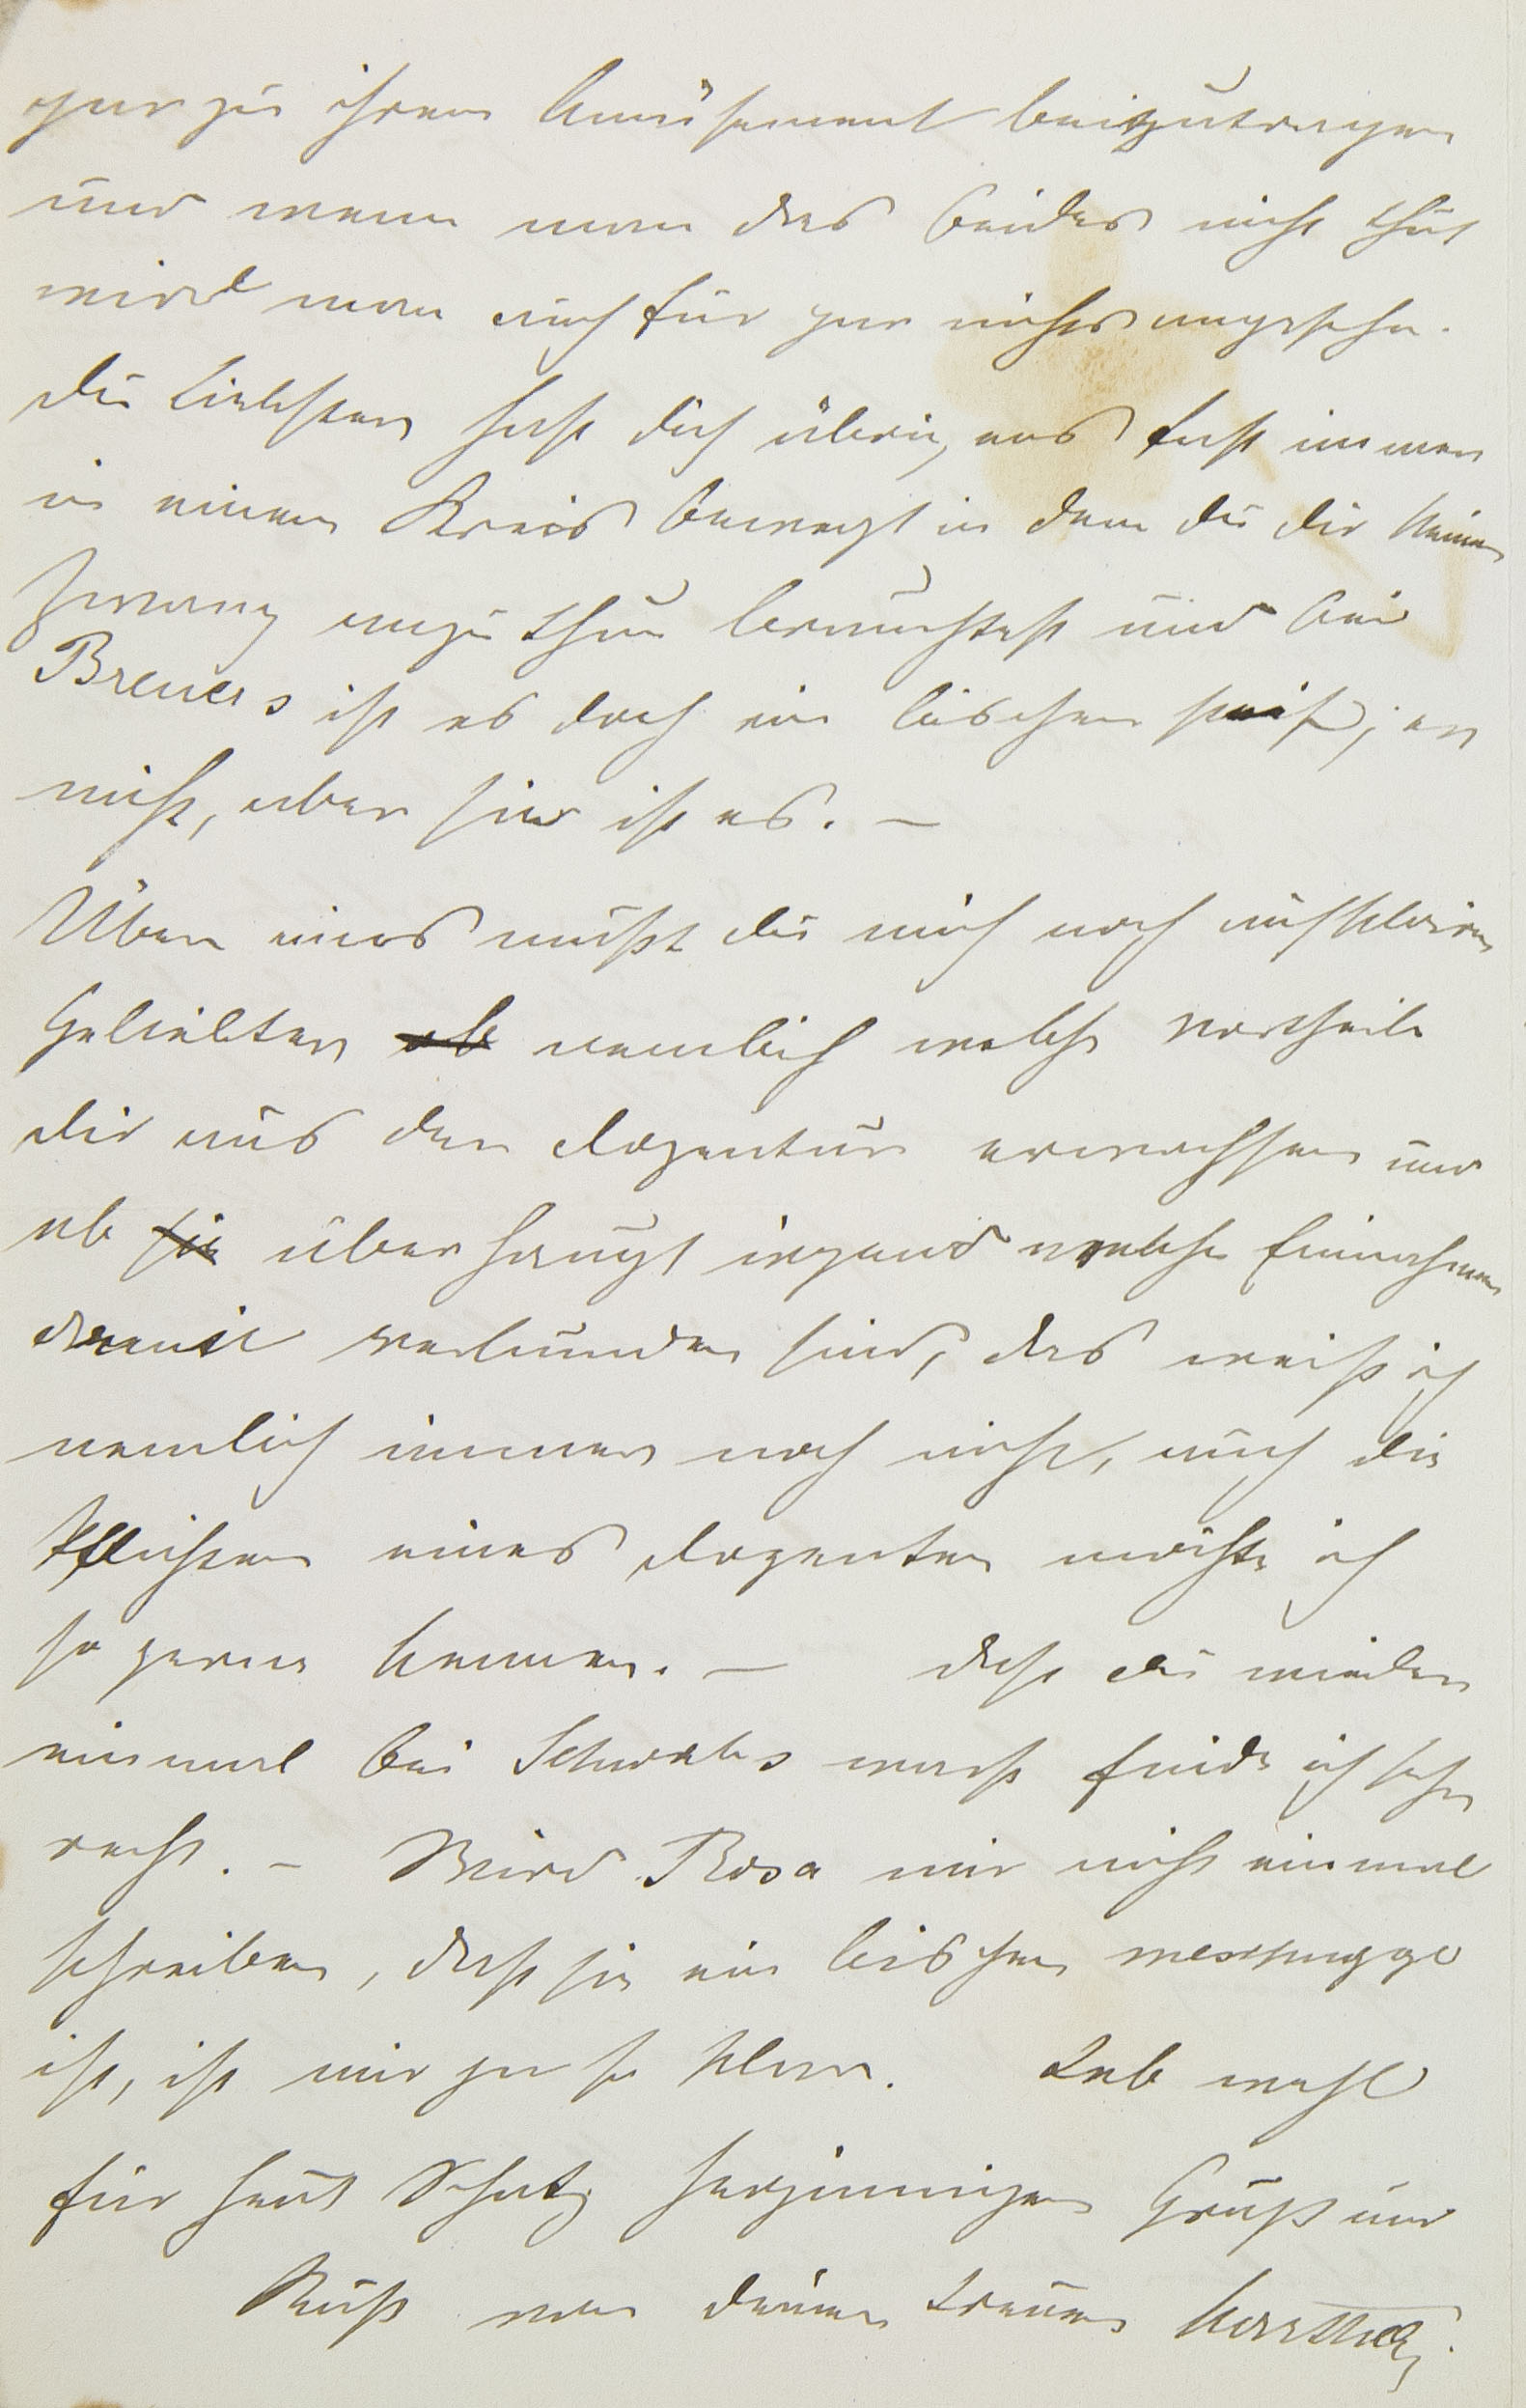 gar zu ihrem Amüsement beizutragen
und wenn man das beides nicht thut
wird man auch für gar nichts angesehn.
du Liebster hast dich übrigens fast immer
in einem Kreis bewegt in dem du dir keinen
Zwang anzuthun brauchtest und bei
Breuers ist es doch ein bischen steif, er
nicht, aber sie ist es. –
Über eines mußt du mich noch aufklären
Geliebter ob nemlich welche Vortheile
dir aus der dozentur erwachsen und
ob sie überhaupt irgend welche Einnahmen
damit verbunden sind, das weiß ich
nemlich immer noch nicht, auch die
Pflichten eines dozenten möchte ich
so gerne kennen. – daß du wieder
einmal bei Schwabs warst finde ich sehr
recht. – Wird Rosa mir nicht einmal
schreiben, daß sie ein bischen meschugge
ist, ist mir ja so klar. Leb wohl
für heut Schatz herzinnigen Gruß und
Kuß von deiner treuen Marthe.